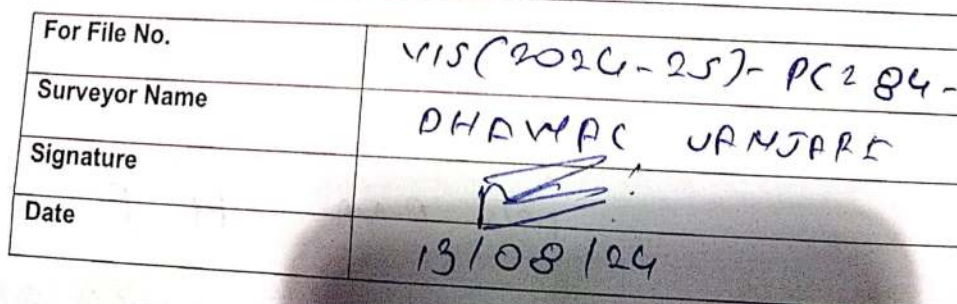 For File No. VIS(2024-25)-PC284-
Surveyor Name DHAWAL VANJARI
Signature
Date 13/08/24